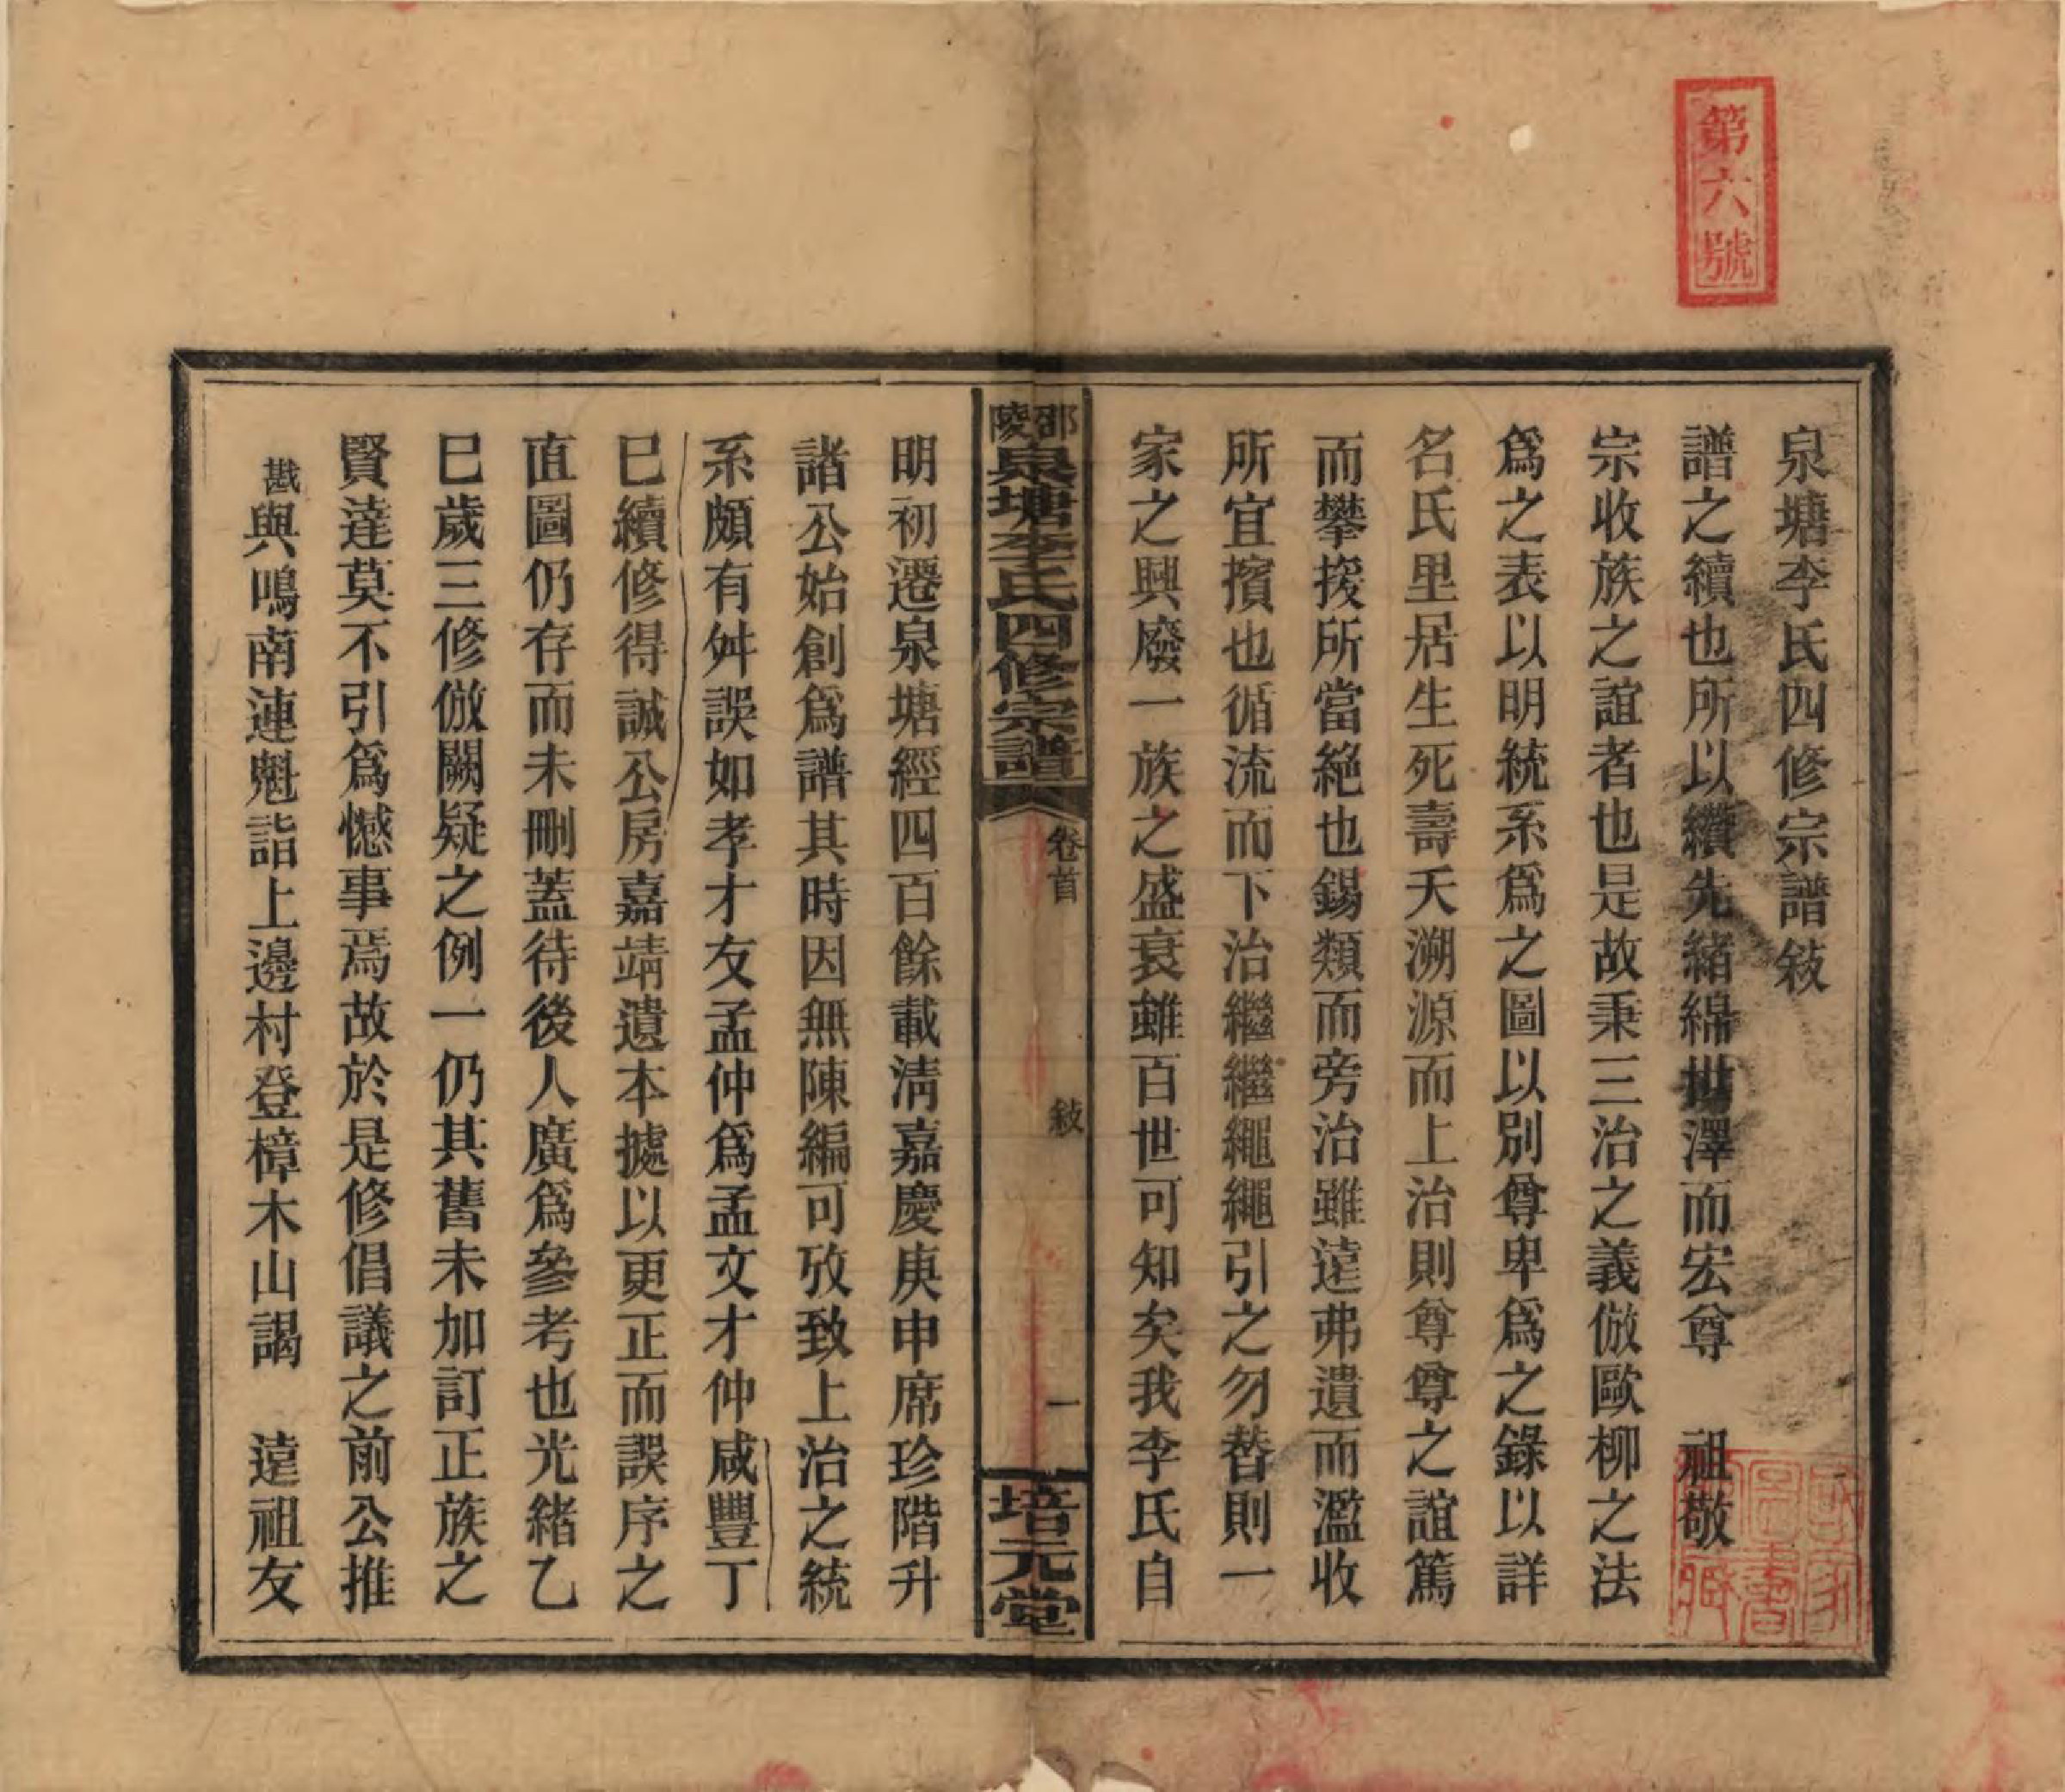 第六號
泉塘李氏四修宗譜敍
譜之續也所以纘先緒綿世澤而宏尊　祖敬
宗收族之誼者也是故秉三治之義倣歐柳之法
爲之表以明統系爲之圖以別尊卑爲之錄以詳
名氏里居生死壽夭溯源而上治則尊尊之誼篤
而攀援所當絕也錫類而旁治雖遠弗遺而濫收
所宜擯也循流而下治繼繼繩繩引之勿替則一
家之興廢一族之盛衰雖百世可知矣我李氏自
邵陵泉塘李氏四修宗譜
卷首
敍
一
培元堂
明初遷泉塘經四百餘載淸嘉慶庚申席珍階升
諸公始創爲譜其時因無陳編可攷致上治之統
系頗有舛誤如孝才友孟仲爲孟文才仲咸豐丁
巳續修得誠公房嘉靖遺本據以更正而誤序之
直圖仍存而未刪蓋待後人廣爲參考也光緒乙
巳歲三修倣闕疑之例一仍其舊未加訂正族之
賢達莫不引爲憾事焉故於是修倡議之前公推
戡與鳴南連魁詣上邊村登樟木山謁　遠祖友
國家圖書館藏